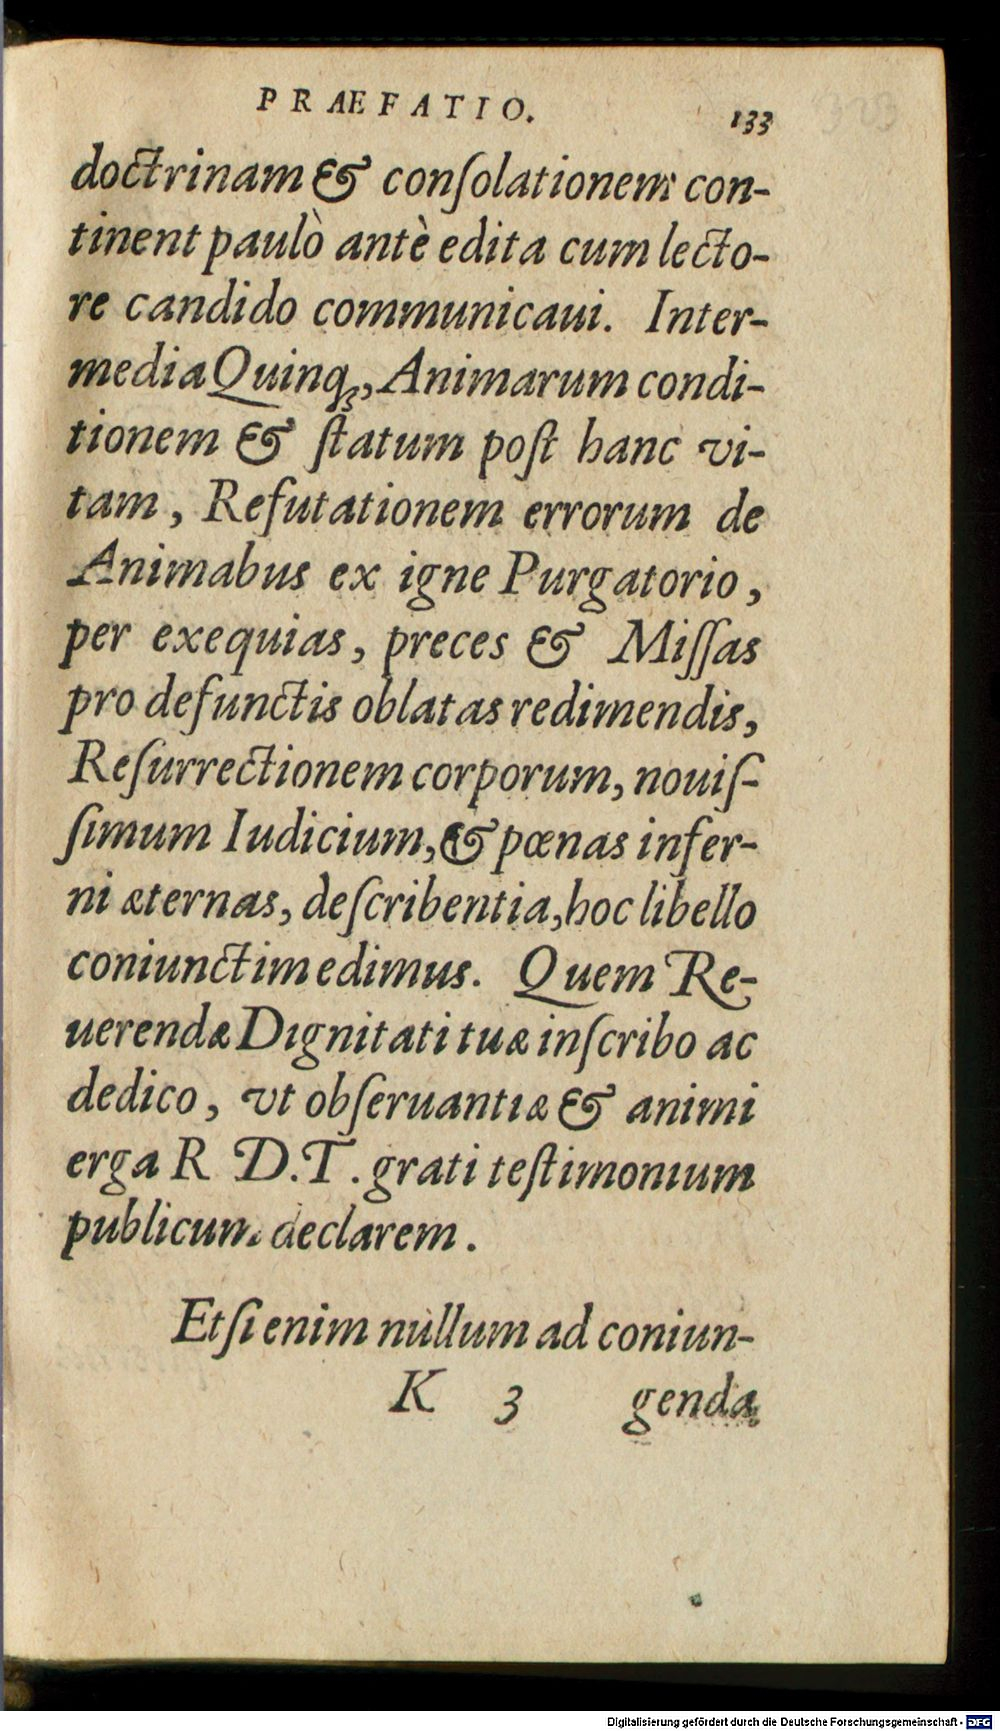 PRÆFATIO. 133
doctrinam & conſolationem con-
tinent paulò antè edita cum lecto-
re candido communicaui. Inter-
media Quinq;, Animarum condi-
tionem & ſtatum poſt hanc vi-
tam, Refutationem errorum de
Animabus ex igne Purgatorio,
per exequias, preces & Miſſas
pro defunctis oblatas redimendis,
Reſurrectionem corporum, nouiſ-
ſimum Iudicium, & pœnas infer-
ni æternas, deſcribentia, hoc libello
coniunctim edimus. Quem Re-
uerendæ Dignitati tuæ inſcribo ac
dedico, vt obſeruantiæ & animi
erga R D.T. grati teſtimonium
publicum declarem.
Etſi enim nullum ad coniun-
K 3 genda
Digitalisierung gefördert durch die Deutsche Forschungsgemeinschaft - DFG